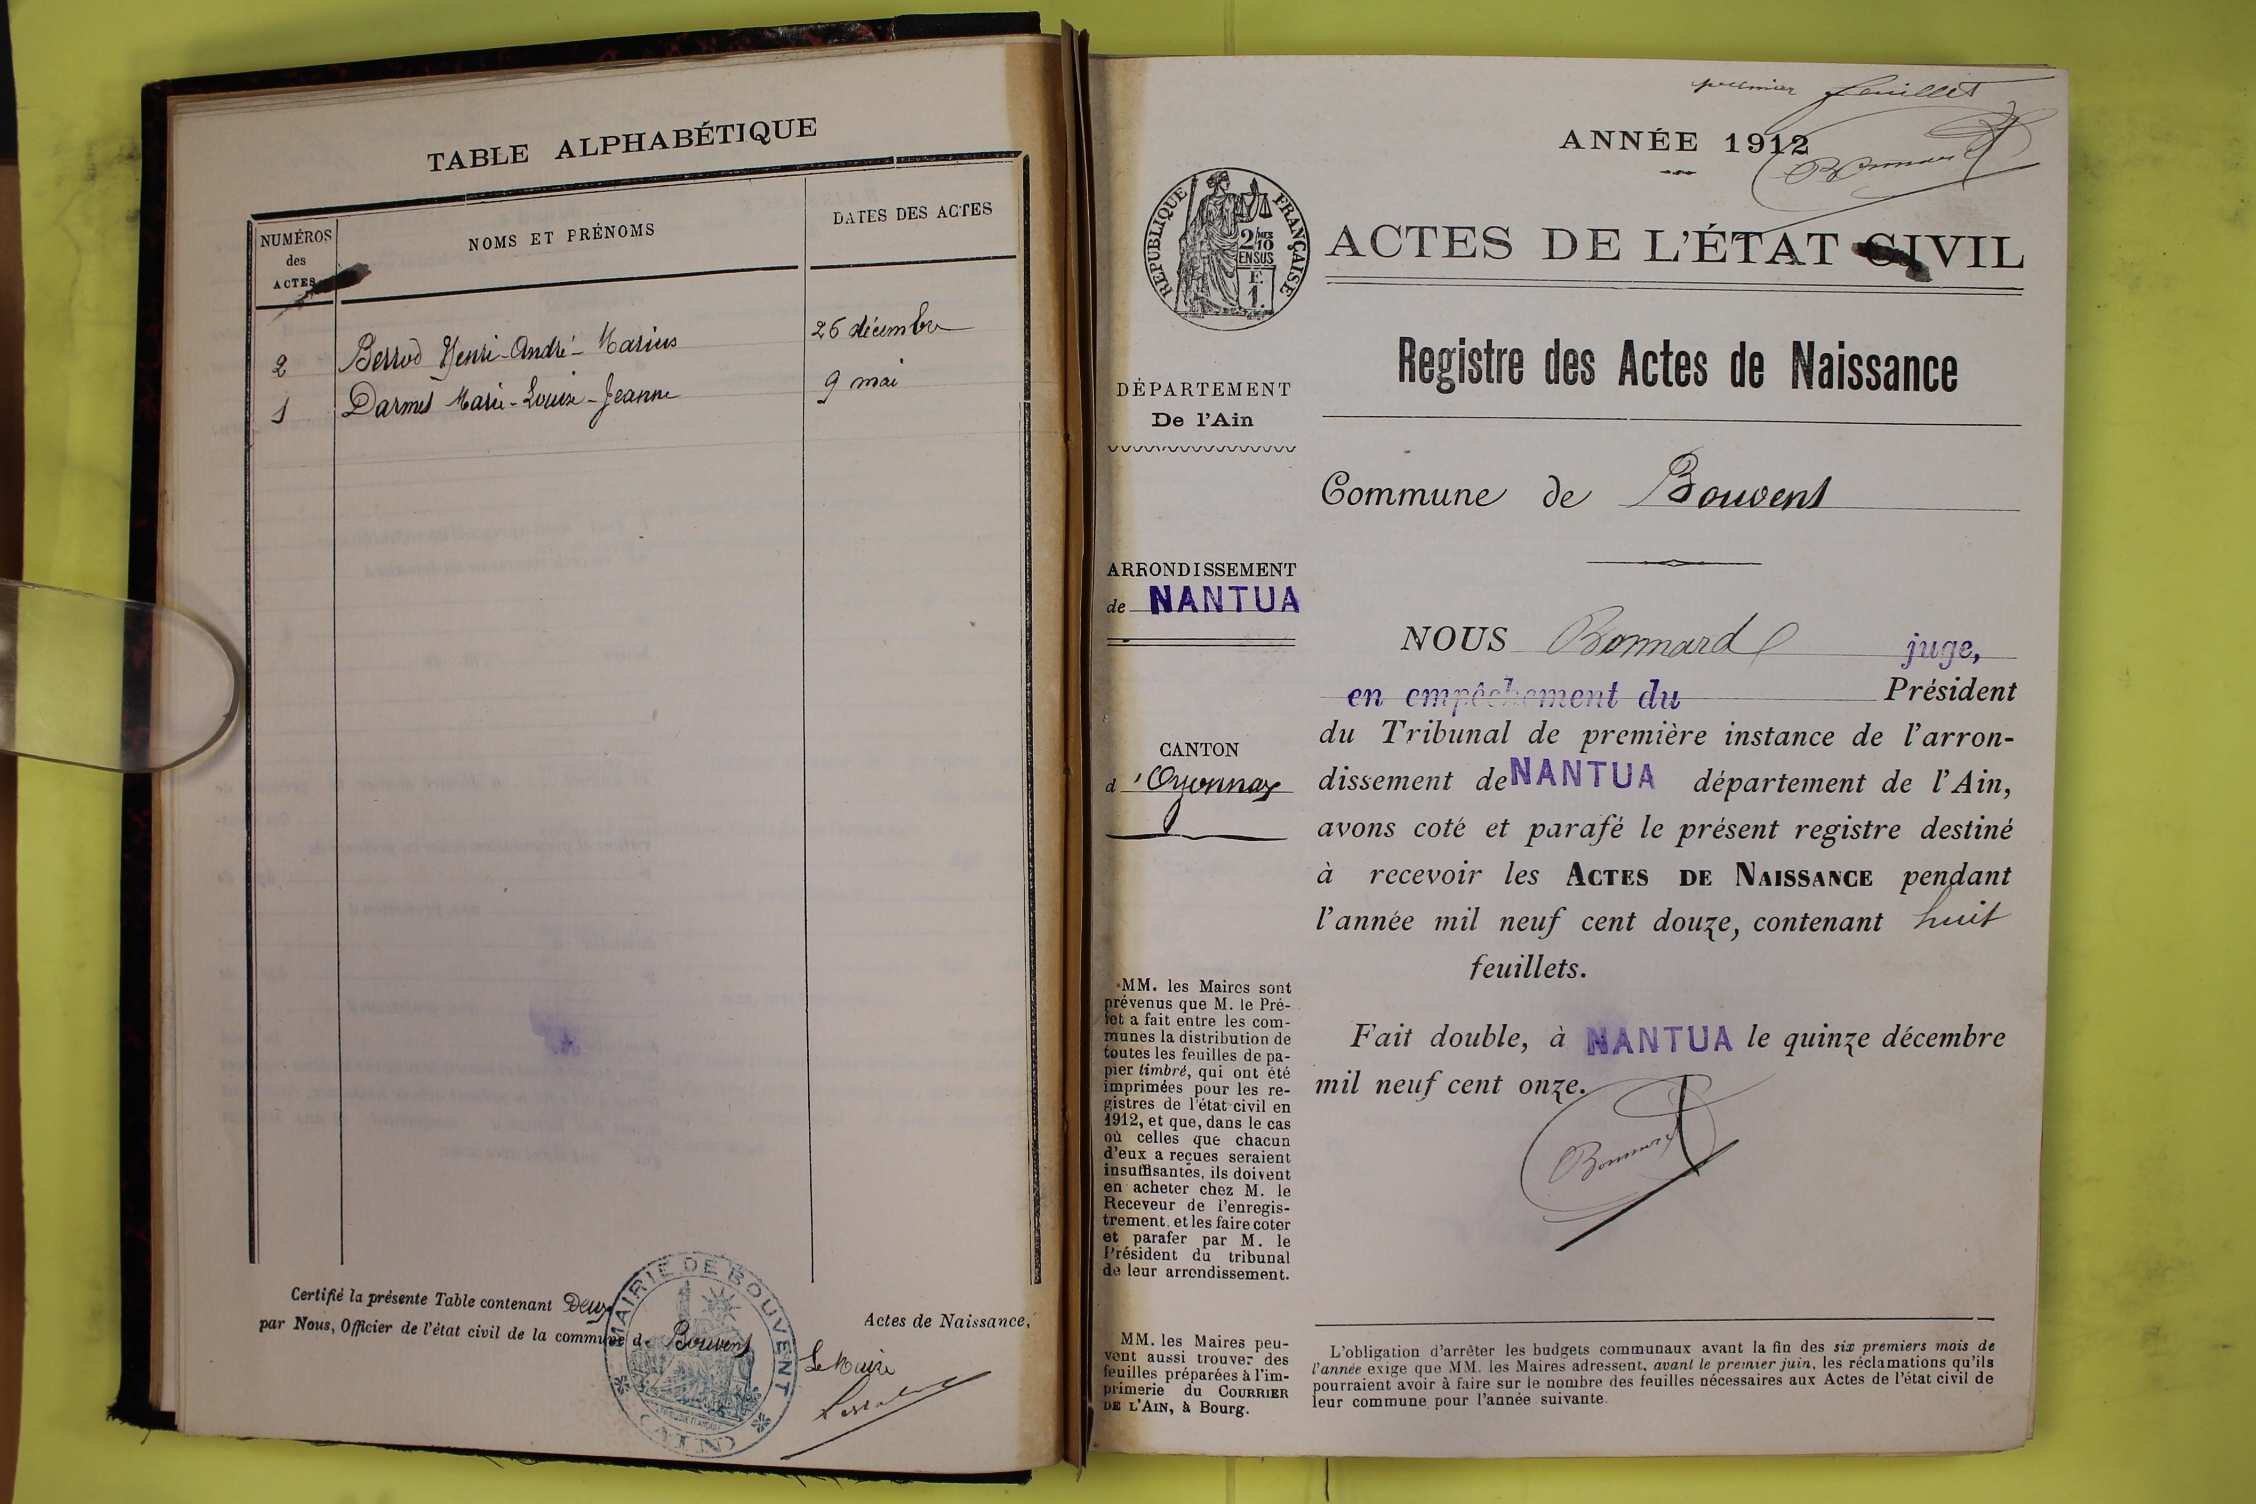 TABLE ALPHABÉTIQUE
NUMÉROS
des
ACTES
NOMS ET PRÉNOMS
DATES DES ACTES
2 Berrod Henri-André-Marius 26 décembre
1 Darmet Marie-Louise-Jeanne 9 mai
Certifié la présente Table contenant Deux Actes de Naissance,
par Nous, Officier de l'état civil de la commune de Bouvent
Le Maire
MAIRIE DE BOUVENT
(AIN)
premier feuillet
Bonnard
ANNÉE 1912
RÉPUBLIQUE FRANÇAISE
2/10 EN SUS
E.
1.
ACTES DE L'ÉTAT CIVIL
Registre des Actes de Naissance
DÉPARTEMENT
De l'Ain
Commune de Bouvent
ARRONDISSEMENT
de NANTUA
CANTON
d'Oyonnax
MM. les Maires sont
prévenus que M. le Pré-
fet a fait entre les com-
munes la distribution de
toutes les feuilles de pa-
pier timbré, qui ont été
imprimées pour les re-
gistres de l'état civil en
1912, et que, dans le cas
où celles que chacun
d'eux a reçues seraient
insuffisantes, ils doivent
en acheter chez M. le
Receveur de l'enregis-
trement, et les faire coter
et parafer par M. le
Président du tribunal
de leur arrondissement.
MM. les Maires peu-
vent aussi trouver des
feuilles préparées à l'im-
primerie du COURRIER
DE L'AIN, à Bourg.
NOUS Bonnard juge,
en empêchement du Président
du Tribunal de première instance de l'arron-
dissement de NANTUA département de l'Ain,
avons coté et parafé le présent registre destiné
à recevoir les ACTES DE NAISSANCE pendant
l'année mil neuf cent douze, contenant huit
feuillets.
Fait double, à NANTUA le quinze décembre
mil neuf cent onze.
Bonnard
L'obligation d'arrêter les budgets communaux avant la fin des six premiers mois de
l'année exige que MM. les Maires adressent, avant le premier juin, les réclamations qu'ils
pourraient avoir à faire sur le nombre des feuilles nécessaires aux Actes de l'état civil de
leur commune pour l'année suivante.